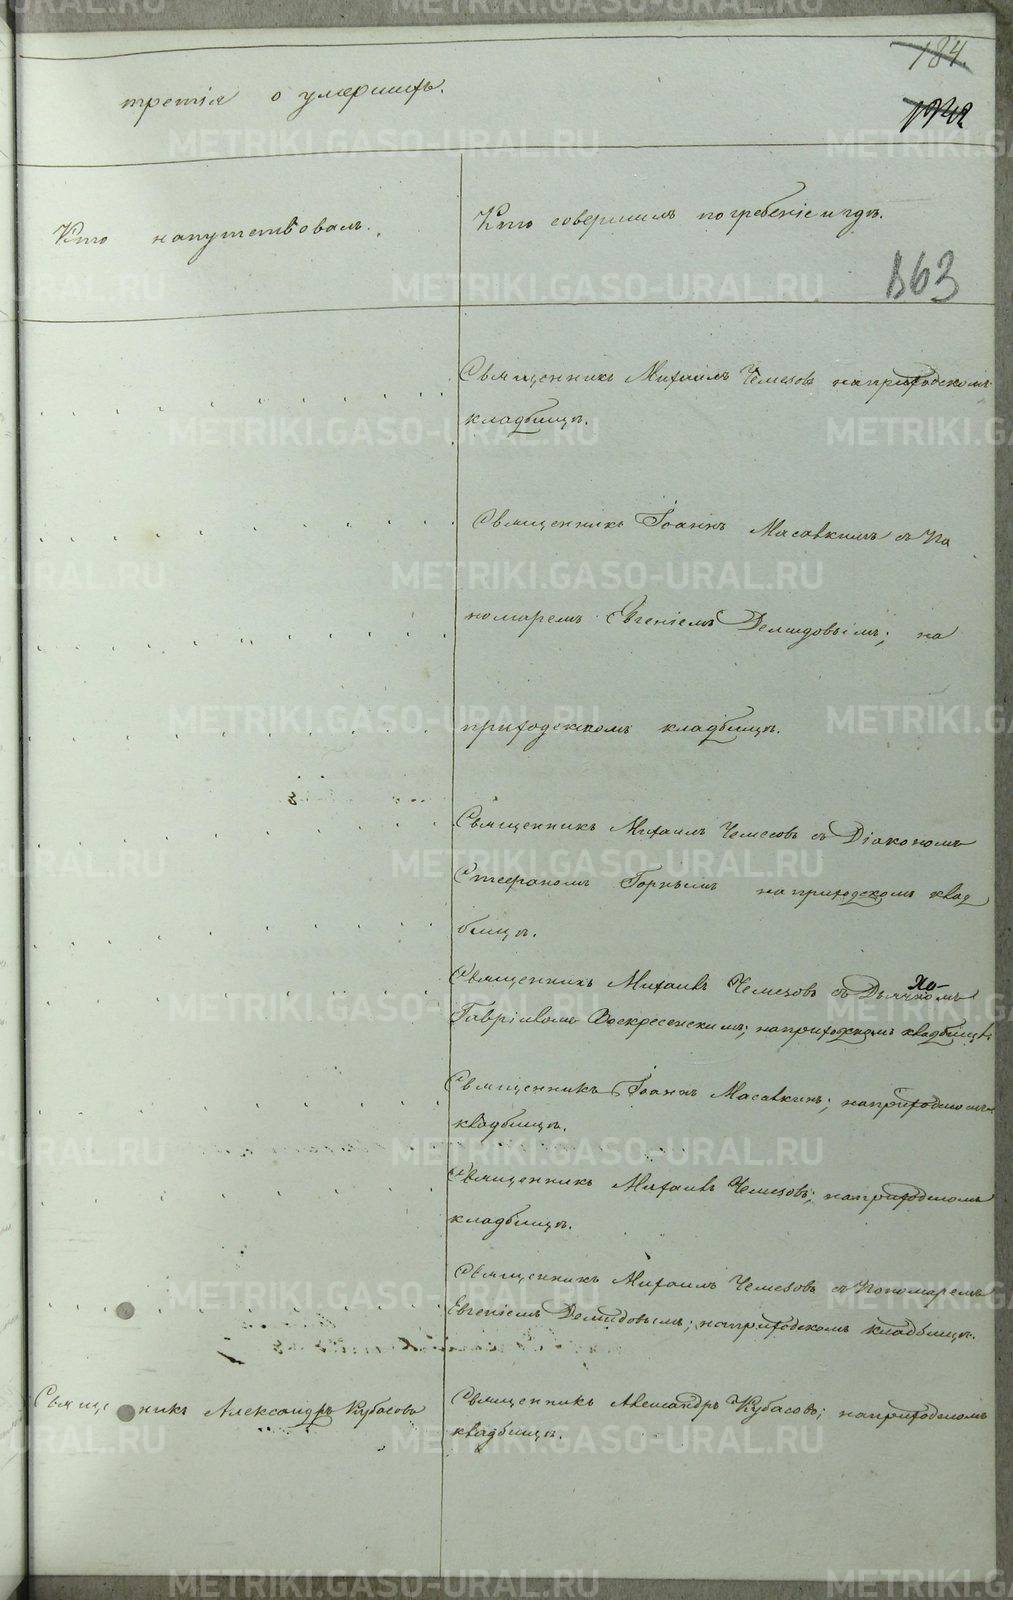 184.
третія о умершихъ.
Кто напутствовалъ.
Кто совершилъ погребеніе и гдѣ.
863
Священникъ Михаилъ Чемезовъ на приходскомъ
кладбищѣ.
Священникъ Іоаннъ Масавкинъ съ По
номаремъ Евгеніемъ Демидовымъ; на
приходскомъ кладбищѣ.
Священникъ Михаилъ Чемесовъ съ Діакономъ
Стефаномъ Горнымъ на приходскомъ клад
бищѣ.
Священникъ Михаилъ Чемезовъ съ Дьячкомъ
Гавріиломъ Воскресенскимъ; на приходскомъ кладбищѣ
Священникъ Іоаннъ Масавкинъ; на приходскомъ
кладбищѣ.
Священникъ Михаилъ Чемезовъ; на приходскомъ
кладбищѣ.
Священникъ Михаилъ Чемезовъ съ Пономаремъ
Евгеніемъ Демидовымъ; на приходскомъ кладбищѣ.
Священникъ Александръ Кубасовъ
Священникъ Александръ Кубасовъ; на приходскомъ
кладбищѣ.
METRIKI.GASO-URAL.RU